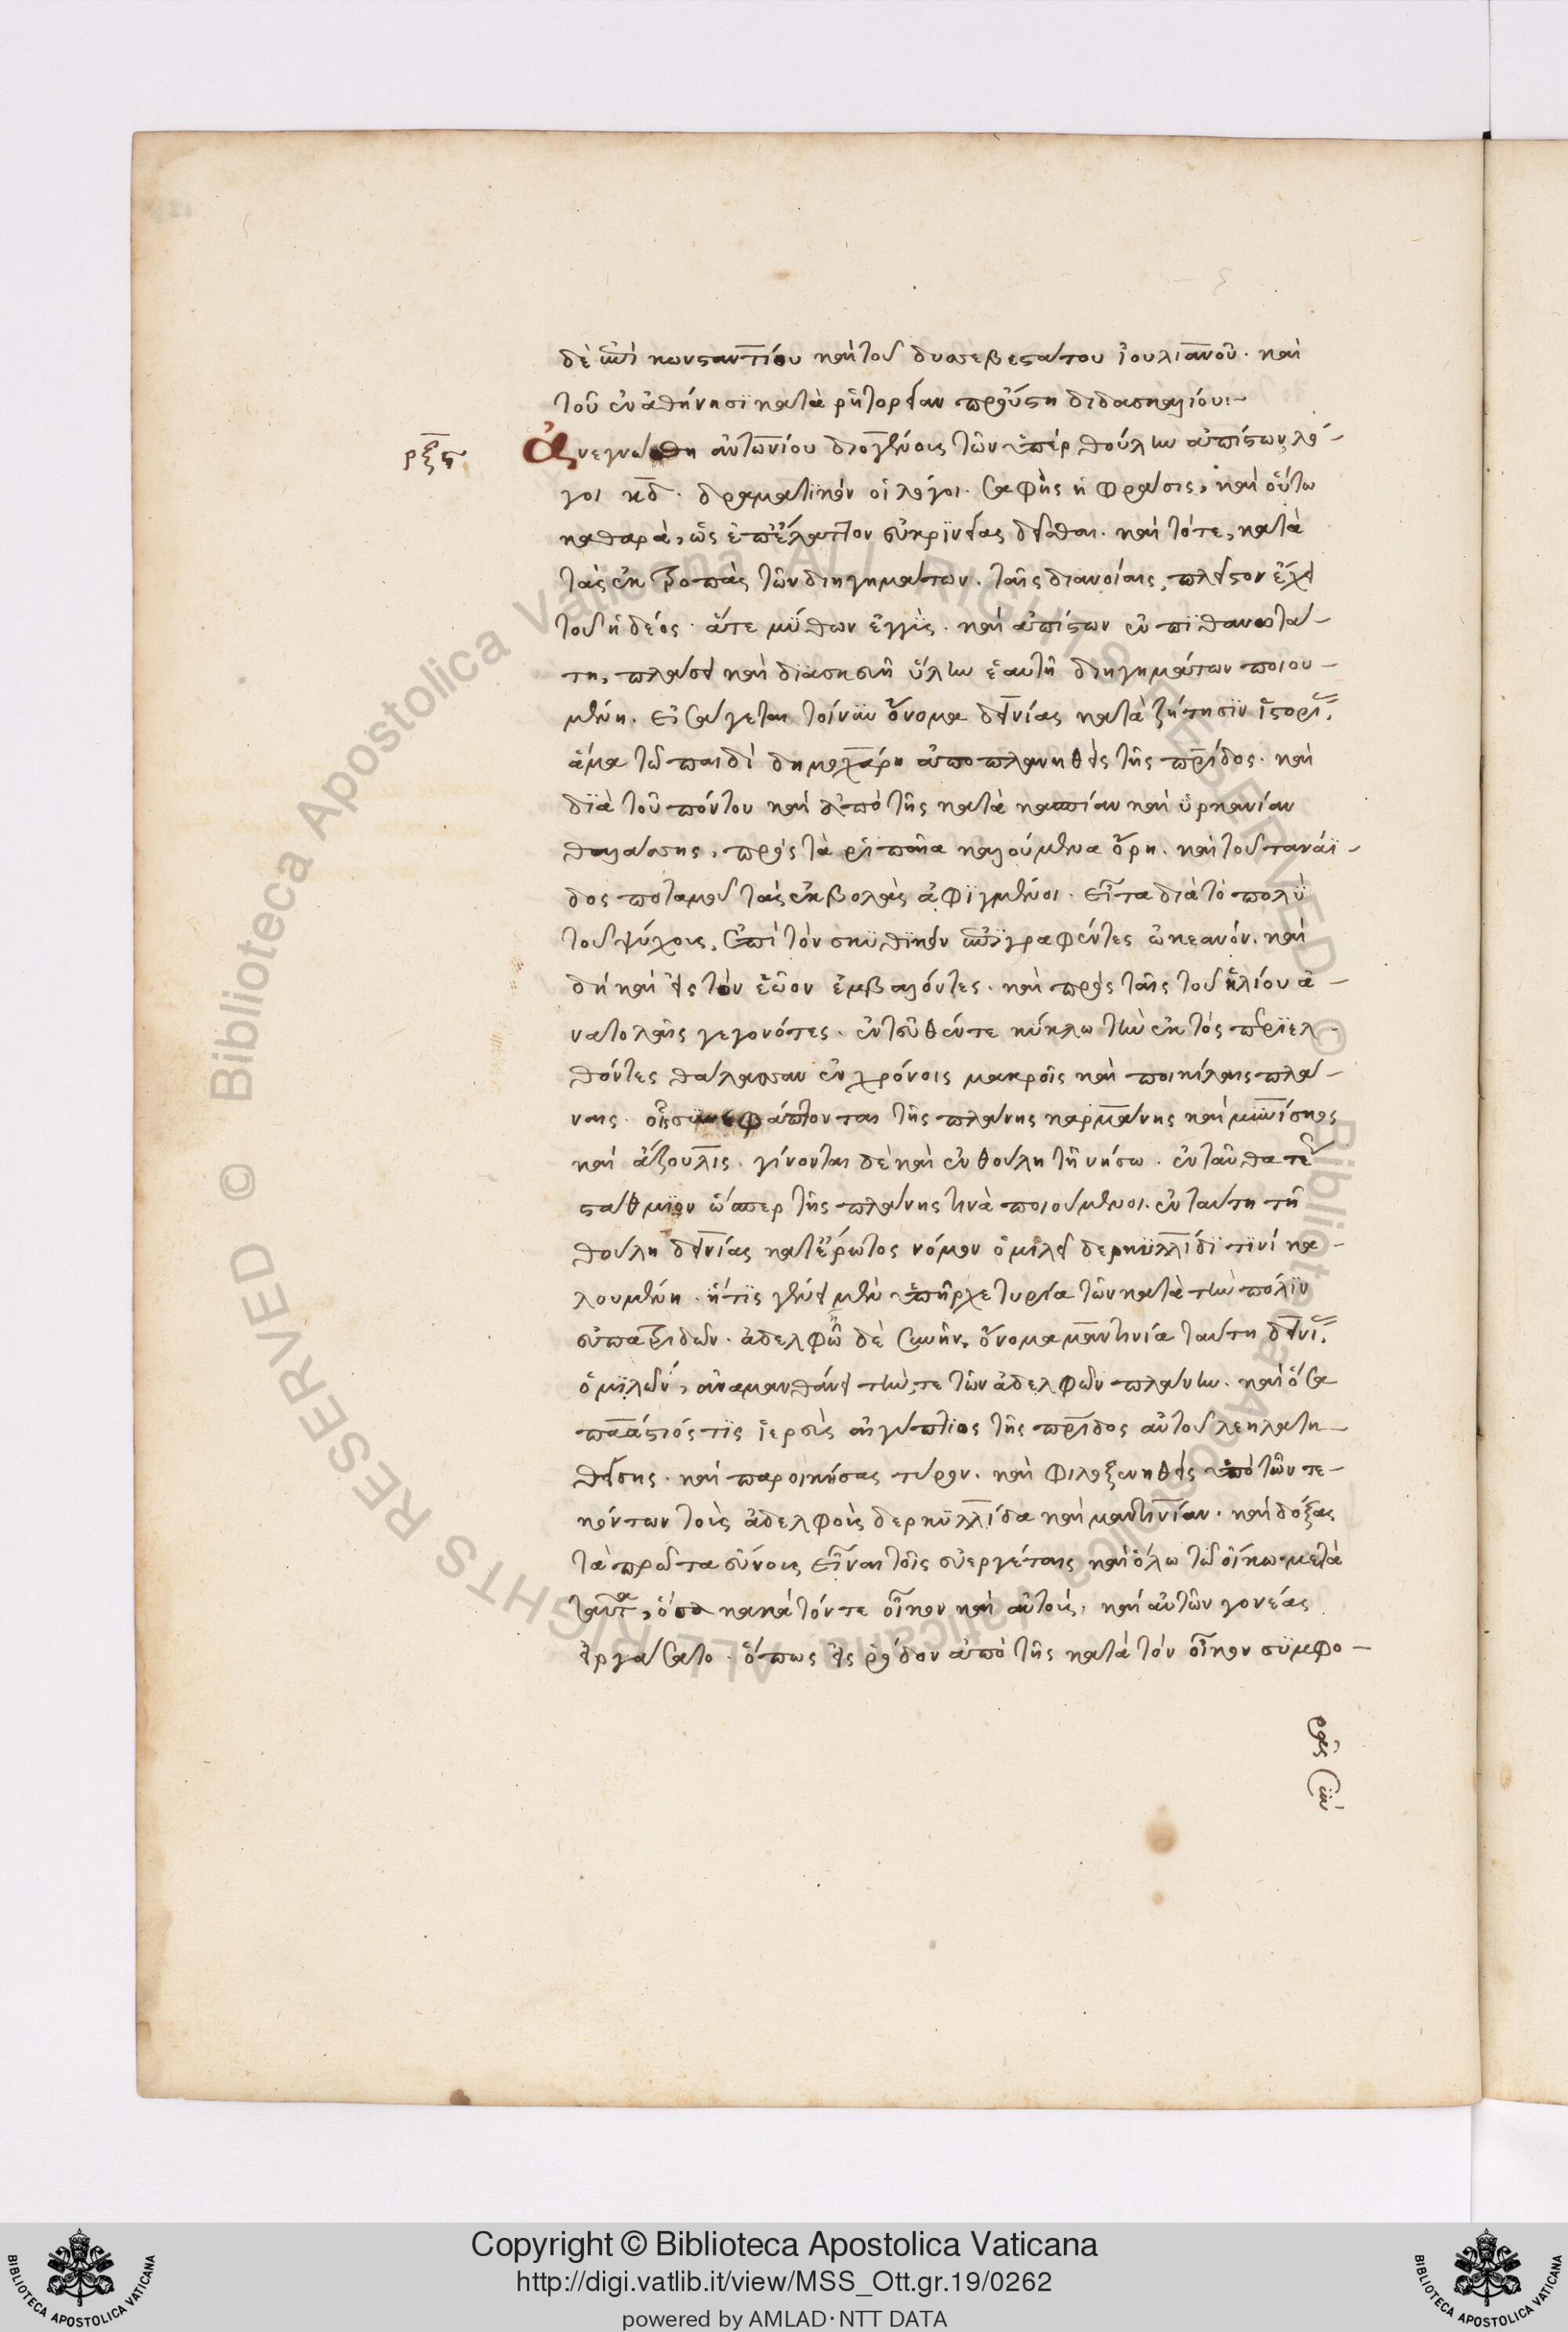 δὲ ἐπὶ κωνσταντίου καὶ τοῦ δυσσεβεστάτου ἰουλιανοῦ. καὶ
τοῦ ἐν ἀθήνησι κατὰ ῥητορείαν προύστη διδασκαλίου:-
ρξς
Ἀνεγνώσθη ἀντωνίου διογένους τῶν ὑπὲρ θούλην ἀπίστων λό-
γοι κδ. δραματικὸν οἱ λόγοι. σαφὴς ἡ φράσις, καὶ οὕτω
καθαρὰ, ὡς ἐπ' ἔλαττον εὐκρινείας δεῖσθαι. καὶ τότε, κατὰ
τὰς ἐκτροπὰς τῶν διηγημάτων. ταῖς διανοίαις, πλεῖστον ἔχει
τοῦ ἡδέος. ἅτε μύθων ἐγγὺς. καὶ ἀπίστων ἐν πιθανωτά-
τη, πλάσει καὶ διασκευῆ ὕλην ἑαυτῆ διηγημάτων ποιου-
μένη. εἰσάγεται τοίνυν ὄνομα δεινίας κατὰ ζήτησιν ἱστορί.
ἅμα τῶ παιδὶ δημοχάρη ἀποπλανηθεὶς τῆς πρίδος. καὶ
διὰ τοῦ πόντου καὶ ἀπὸ τῆς κατὰ κασπίαν καὶ ὑρκανίαν
θαλάσσης, πρὸς τὰ ῥιπαῖα καλούμενα ὄρη. καὶ τοῦ τανάϊ-
δος ποταμοῦ τὰς ἐκβολὰς ἀφιγμένοι. εἶτα διὰ τὸ πολὺ
τοῦ ψύχους, ἐπὶ τὸν σκυθικὸν ἐπιγραφέντες ὠκεανόν. καὶ
δὴ καὶ εἰς τὸν ἑῶον ἐμβαλόντες. καὶ πρὸς ταῖς τοῦ ἡλίου ἀ-
νατολαῖς γεγονότες. ἐντεῦθέν τε κύκλω τὴν ἐκτὸς περιελ-
θόντες θάλασσαν ἐν χρόνοις μακροῖς καὶ ποικίλαις πλά-
ναις. οἷς συνεφάπτονται τῆς πλάνης καρμάνης καὶ μηνίσκος
καὶ ἀζουλις. γίνονται δὲ καὶ ἐν θούλη τῆ νήσω. ἐνταῦθα τέως
σταθμὸν ὥσπερ τῆς πλάνης τινὰ ποιούμενοι. ἐν ταύτη τῆ
θούλη δεινίας κατ' ἔρωτος νόμον ὁμιλεῖ δερκυλλίδι τινὶ κα-
λουμένη. ἥτις γένει μὲν ὑπῆρχε τυρία τῶν κατὰ τὴν πόλιν
εὐπατριδῶν. ἀδελφῶ δὲ συνῆν, ὄνομα μαντινία ταύτη δεινί.
ὁμιλῶν, ἀναμανθάνει τήν, τε τῶν ἀδελφῶν πλάνην. καὶ ὅσα
παάπιός τις ἱερεὺς αἰγύπτιος τῆς πρίδος αὐτοῦ λεηλατη-
θείσης. καὶ παροικήσας τύρον. καὶ φιλοξενηθεὶς ὑπὸ τῶν τε-
κόντων τοὺς ἀδελφοὺς δερκυλλίδα καὶ μαντινίαν. καὶ δόξας
τὰ πρῶτα εὔνους εἶναι τοῖς εὐεργέταις καὶ ὅλω τῶ οἴκω. μετὰ
ταῦτα, ὅσα κακὰ τόν τε οἶκον καὶ αὐτοὺς, καὶ αὐτῶν γονέας
εἰργάσατο. ὅπως εἰς ῥόδον ἀπὸ τῆς κατὰ τὸν οἶκον συμφο-
ρᾶς σὺν
Copyright © Biblioteca Apostolica Vaticana
http://digi.vatlib.it/view/MSS_Ott.gr.19/0262
powered by AMLAD·NTT DATA